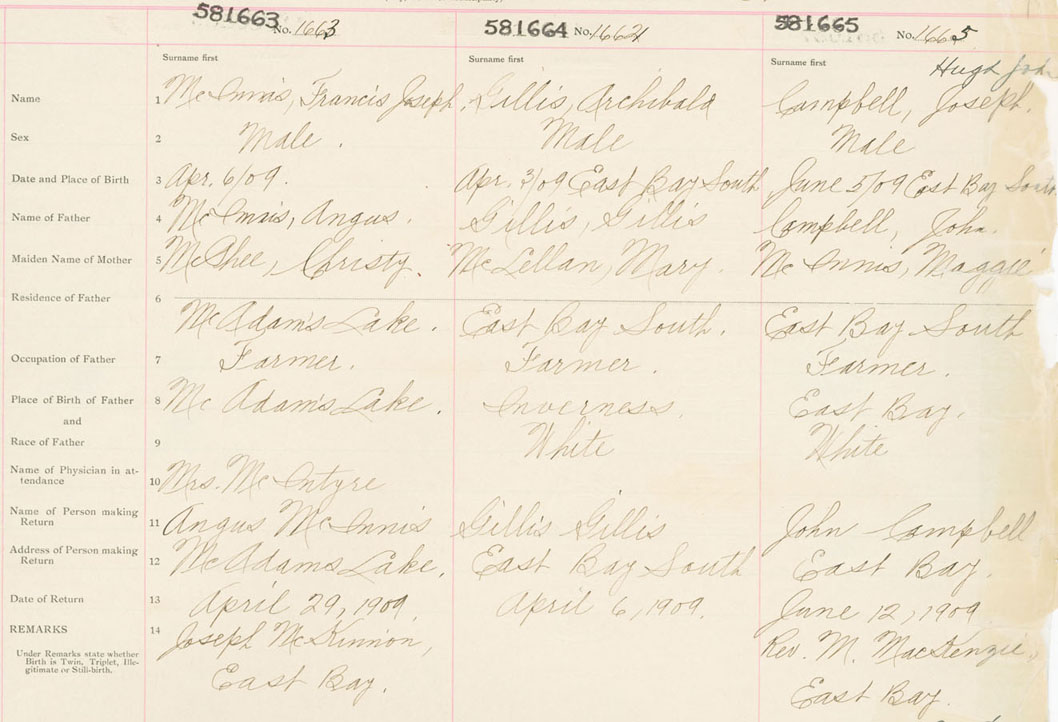 581663 No. 1663 581664 No. 1664 581665 No. 1665
Surname first Surname first Surname first Hugh
Name 1 McInnis, Francis Joseph. Gillis, Archibald Campbell, Joseph.
Sex 2 Male. Male Male
Date and Place of Birth 3 Apr. 6/09. Apr. 3/09 East Bay South June 5/09 East Bay South
Name of Father 4 McInnis, Angus. Gillis, Gillis Campbell, John.
Maiden Name of Mother 5 McPhee, Christy. McLellan, Mary. McInnis, Maggie
Residence of Father 6
McAdam's Lake. East Bay South. East Bay South
Occupation of Father 7 Farmer. Farmer. Farmer.
Place of Birth of Father 8 McAdam's Lake. Inverness. East Bay.
and
Race of Father 9 White White
Name of Physician in at-
tendance 10 Mrs. McIntyre
Name of Person making
Return 11 Angus McInnis Gillis Gillis John Campbell
Address of Person making
Return 12 McAdams Lake. East Bay South East Bay.
Date of Return 13 April 29, 1909 April 6, 1909. June 12, 1909
REMARKS 14 Joseph McKinnon, Rev. M. MacKenzie,
Under Remarks state whether
Birth is Twin, Triplet, Ille-
gitimate or Still-birth.
East Bay. East Bay.